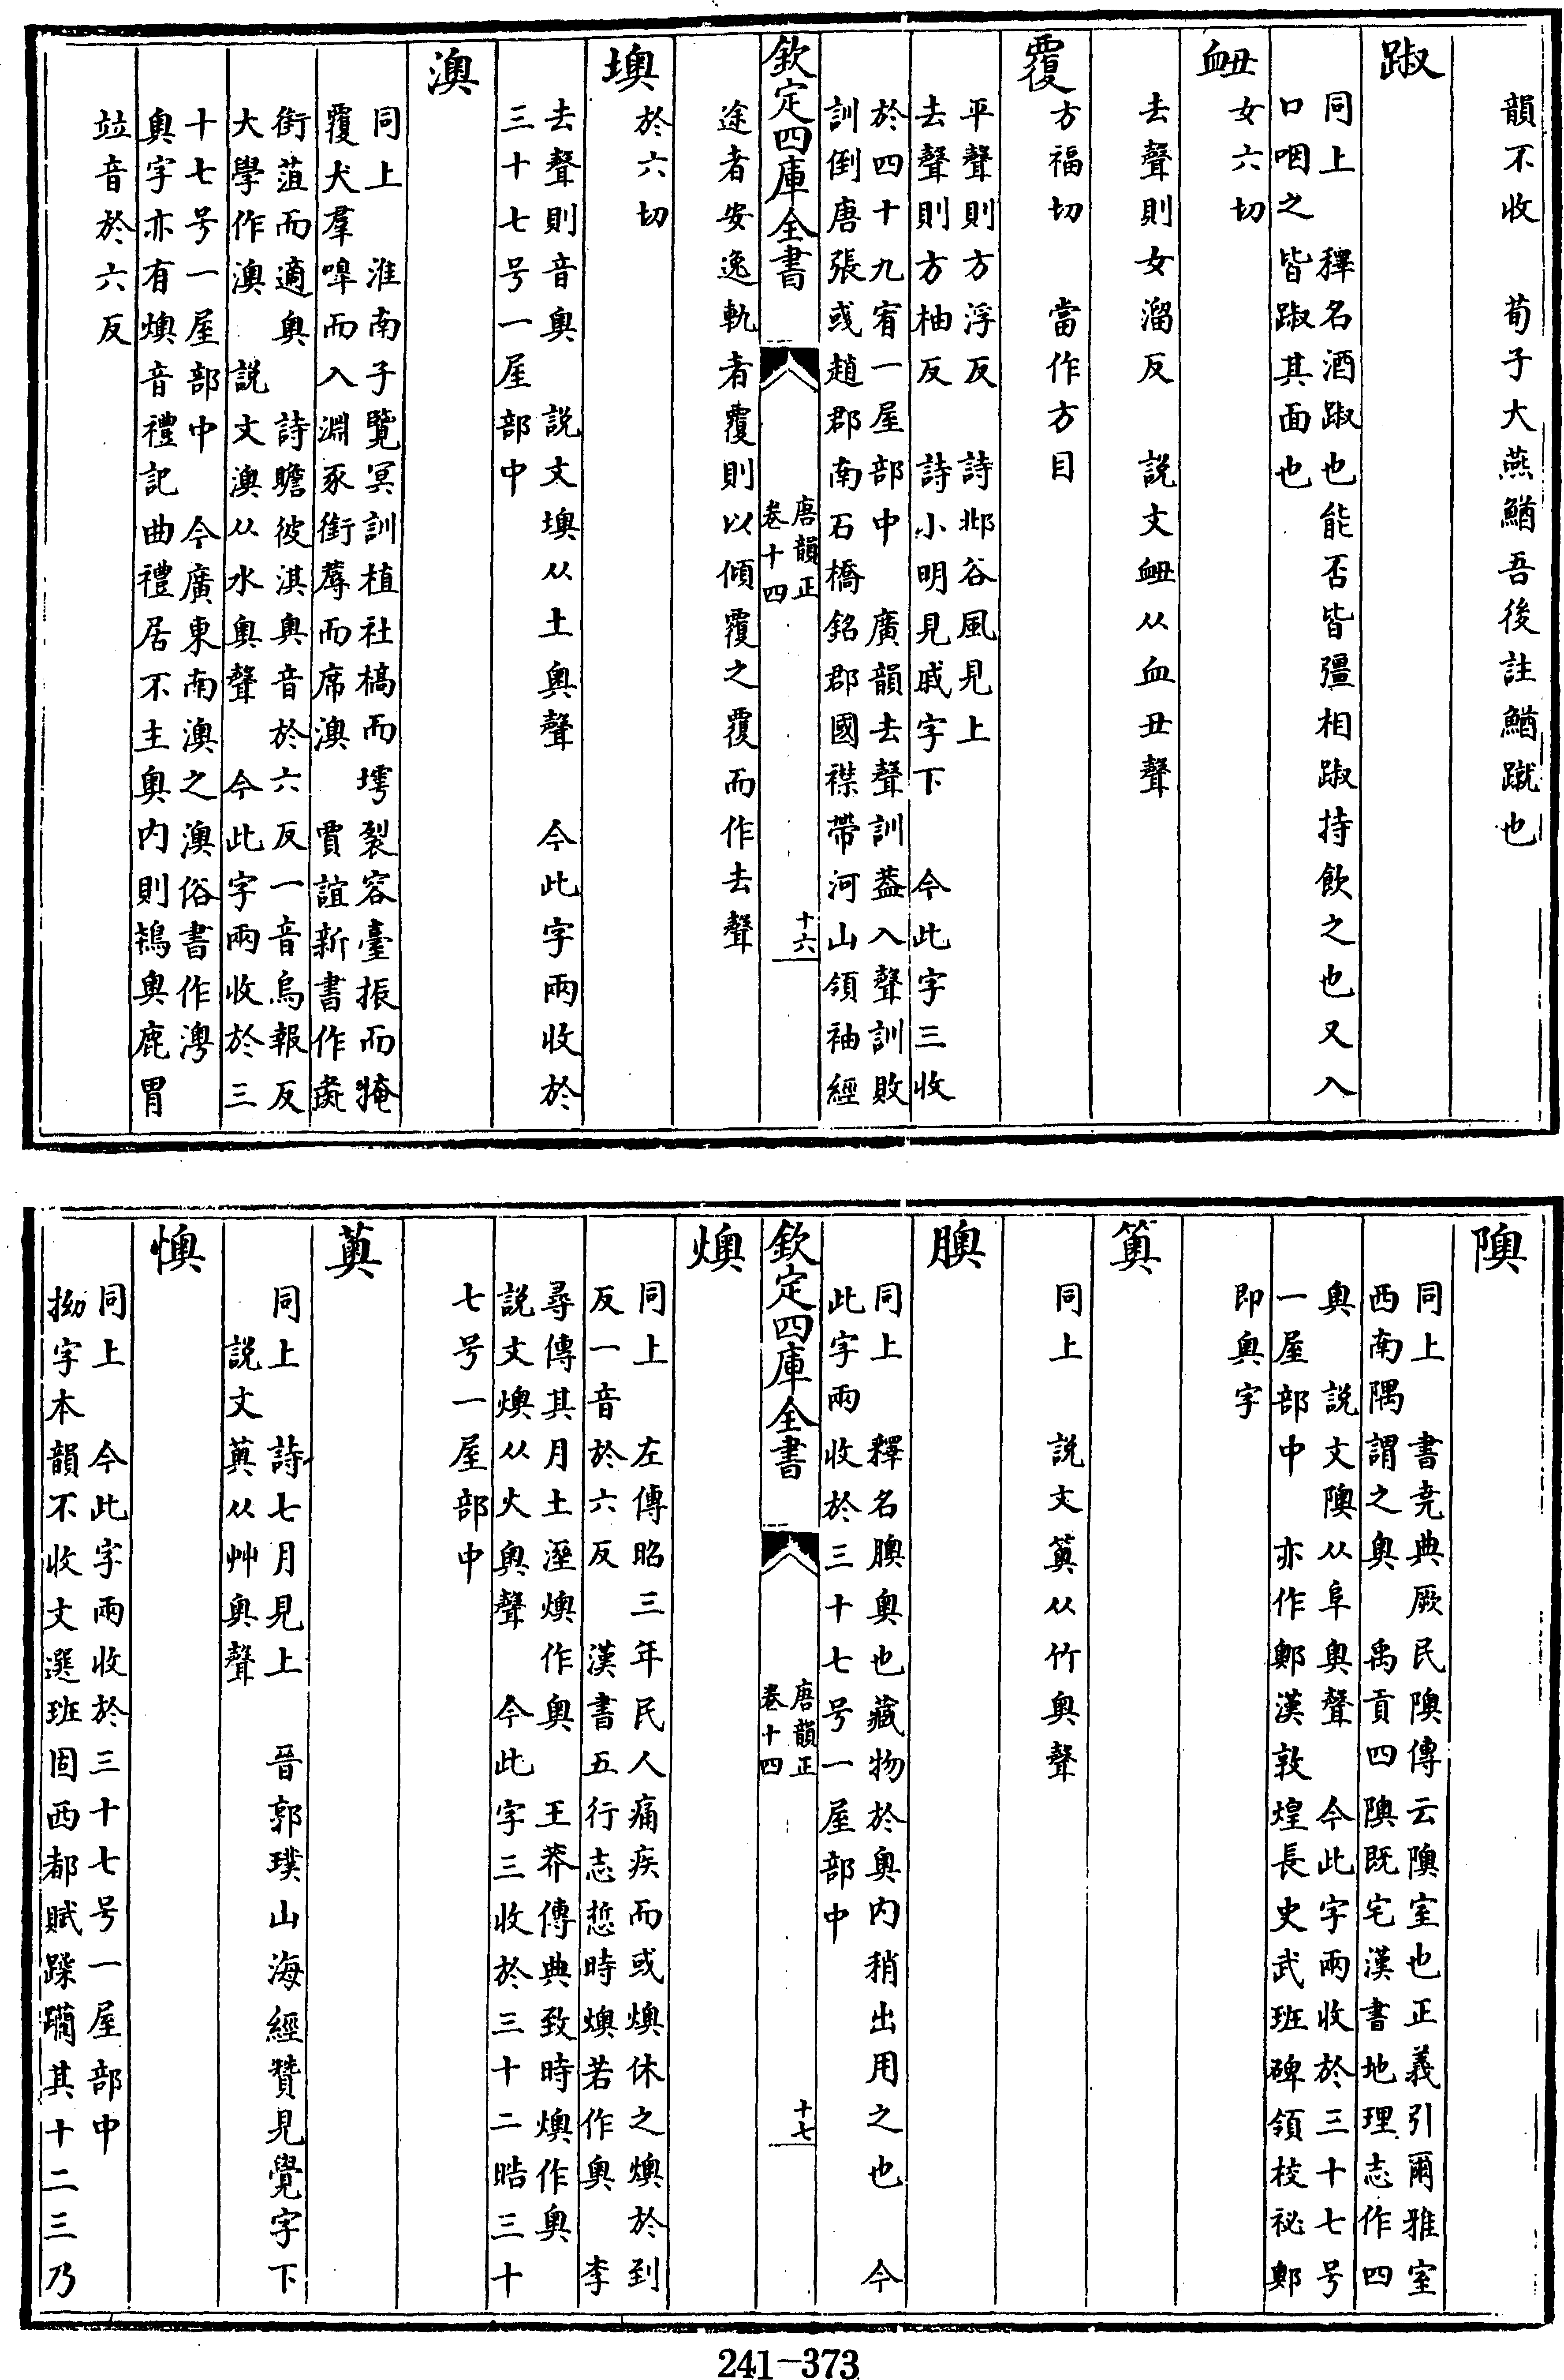 韻不收　荀子大燕鰌吾後註鰌蹴也
踧
同上　釋名酒踧也能否皆彊相踧持飲之也又入
口咽之皆踧其面也
衄
女六切
去聲則女溜反　説文衄从血丑聲
覆
方福切　當作方目
平聲則方浮反　詩邶谷風見上
去聲則方柚反　詩小明見戚字下　今此字三收
於四十九宥一屋部中　廣韻去聲訓葢入聲訓敗
訓倒唐張彧趙郡南石橋銘郡國襟帶河山領袖經
欽定四庫全書
唐韻正
卷十四
十六
途者安逸軌者覆則以傾覆之覆而作去聲
墺
於六切
去聲則音奧　説文墺从土奧聲　今此字兩收於
三十七号一屋部中
澳
同上　淮南子覽冥訓植社槁而㙤裂容臺振而掩
覆犬羣嘷而入淵豕銜蓐而席澳　賈誼新書作彘
銜菹而適奧　詩瞻彼淇奧音於六反一音烏報反
大學作澳　説文澳从水奧聲　今此字兩收於三
十七号一屋部中　今廣東南澳之澳俗書作㴒
奧字亦有燠音禮記曲禮居不主奧内則鴇奧鹿胃
竝音於六反
隩
同上　書堯典厥民隩傳云隩室也正義引爾雅室
西南隅謂之奧　禹貢四隩既宅漢書地理志作四
奧　説文隩从阜奧聲　今此字兩收於三十七号
一屋部中　亦作鄚漢敦煌長史武班碑領校祕鄚
即奧字
薁
同上　説文薁从竹奧聲
腴
同上　釋名腴奧也藏物於奧内稍出用之也　今
此字兩收於三十七号一屋部中
欽定四庫全書
唐韻正
卷十四
十七
燠
同上　左傳昭三年民人痛疾而或燠休之燠於到
反一音於六反　漢書五行志悊時燠若作奧　李
尋傳其月土溼燠作奧　王莽傳典致時燠作奧
説文燠从火奧聲　今此字三收於三十二晧三十
七号一屋部中
薁
同上　詩七月見上　晉郭璞山海經贊見覺字下
説文薁从艸奧聲
懊
同上　今此字兩收於三十七号一屋部中
拗字本韻不收文選班固西都賦蹂躪其十二三乃
241-373